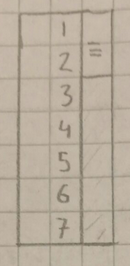 1
2 =
3
4
5
6
7